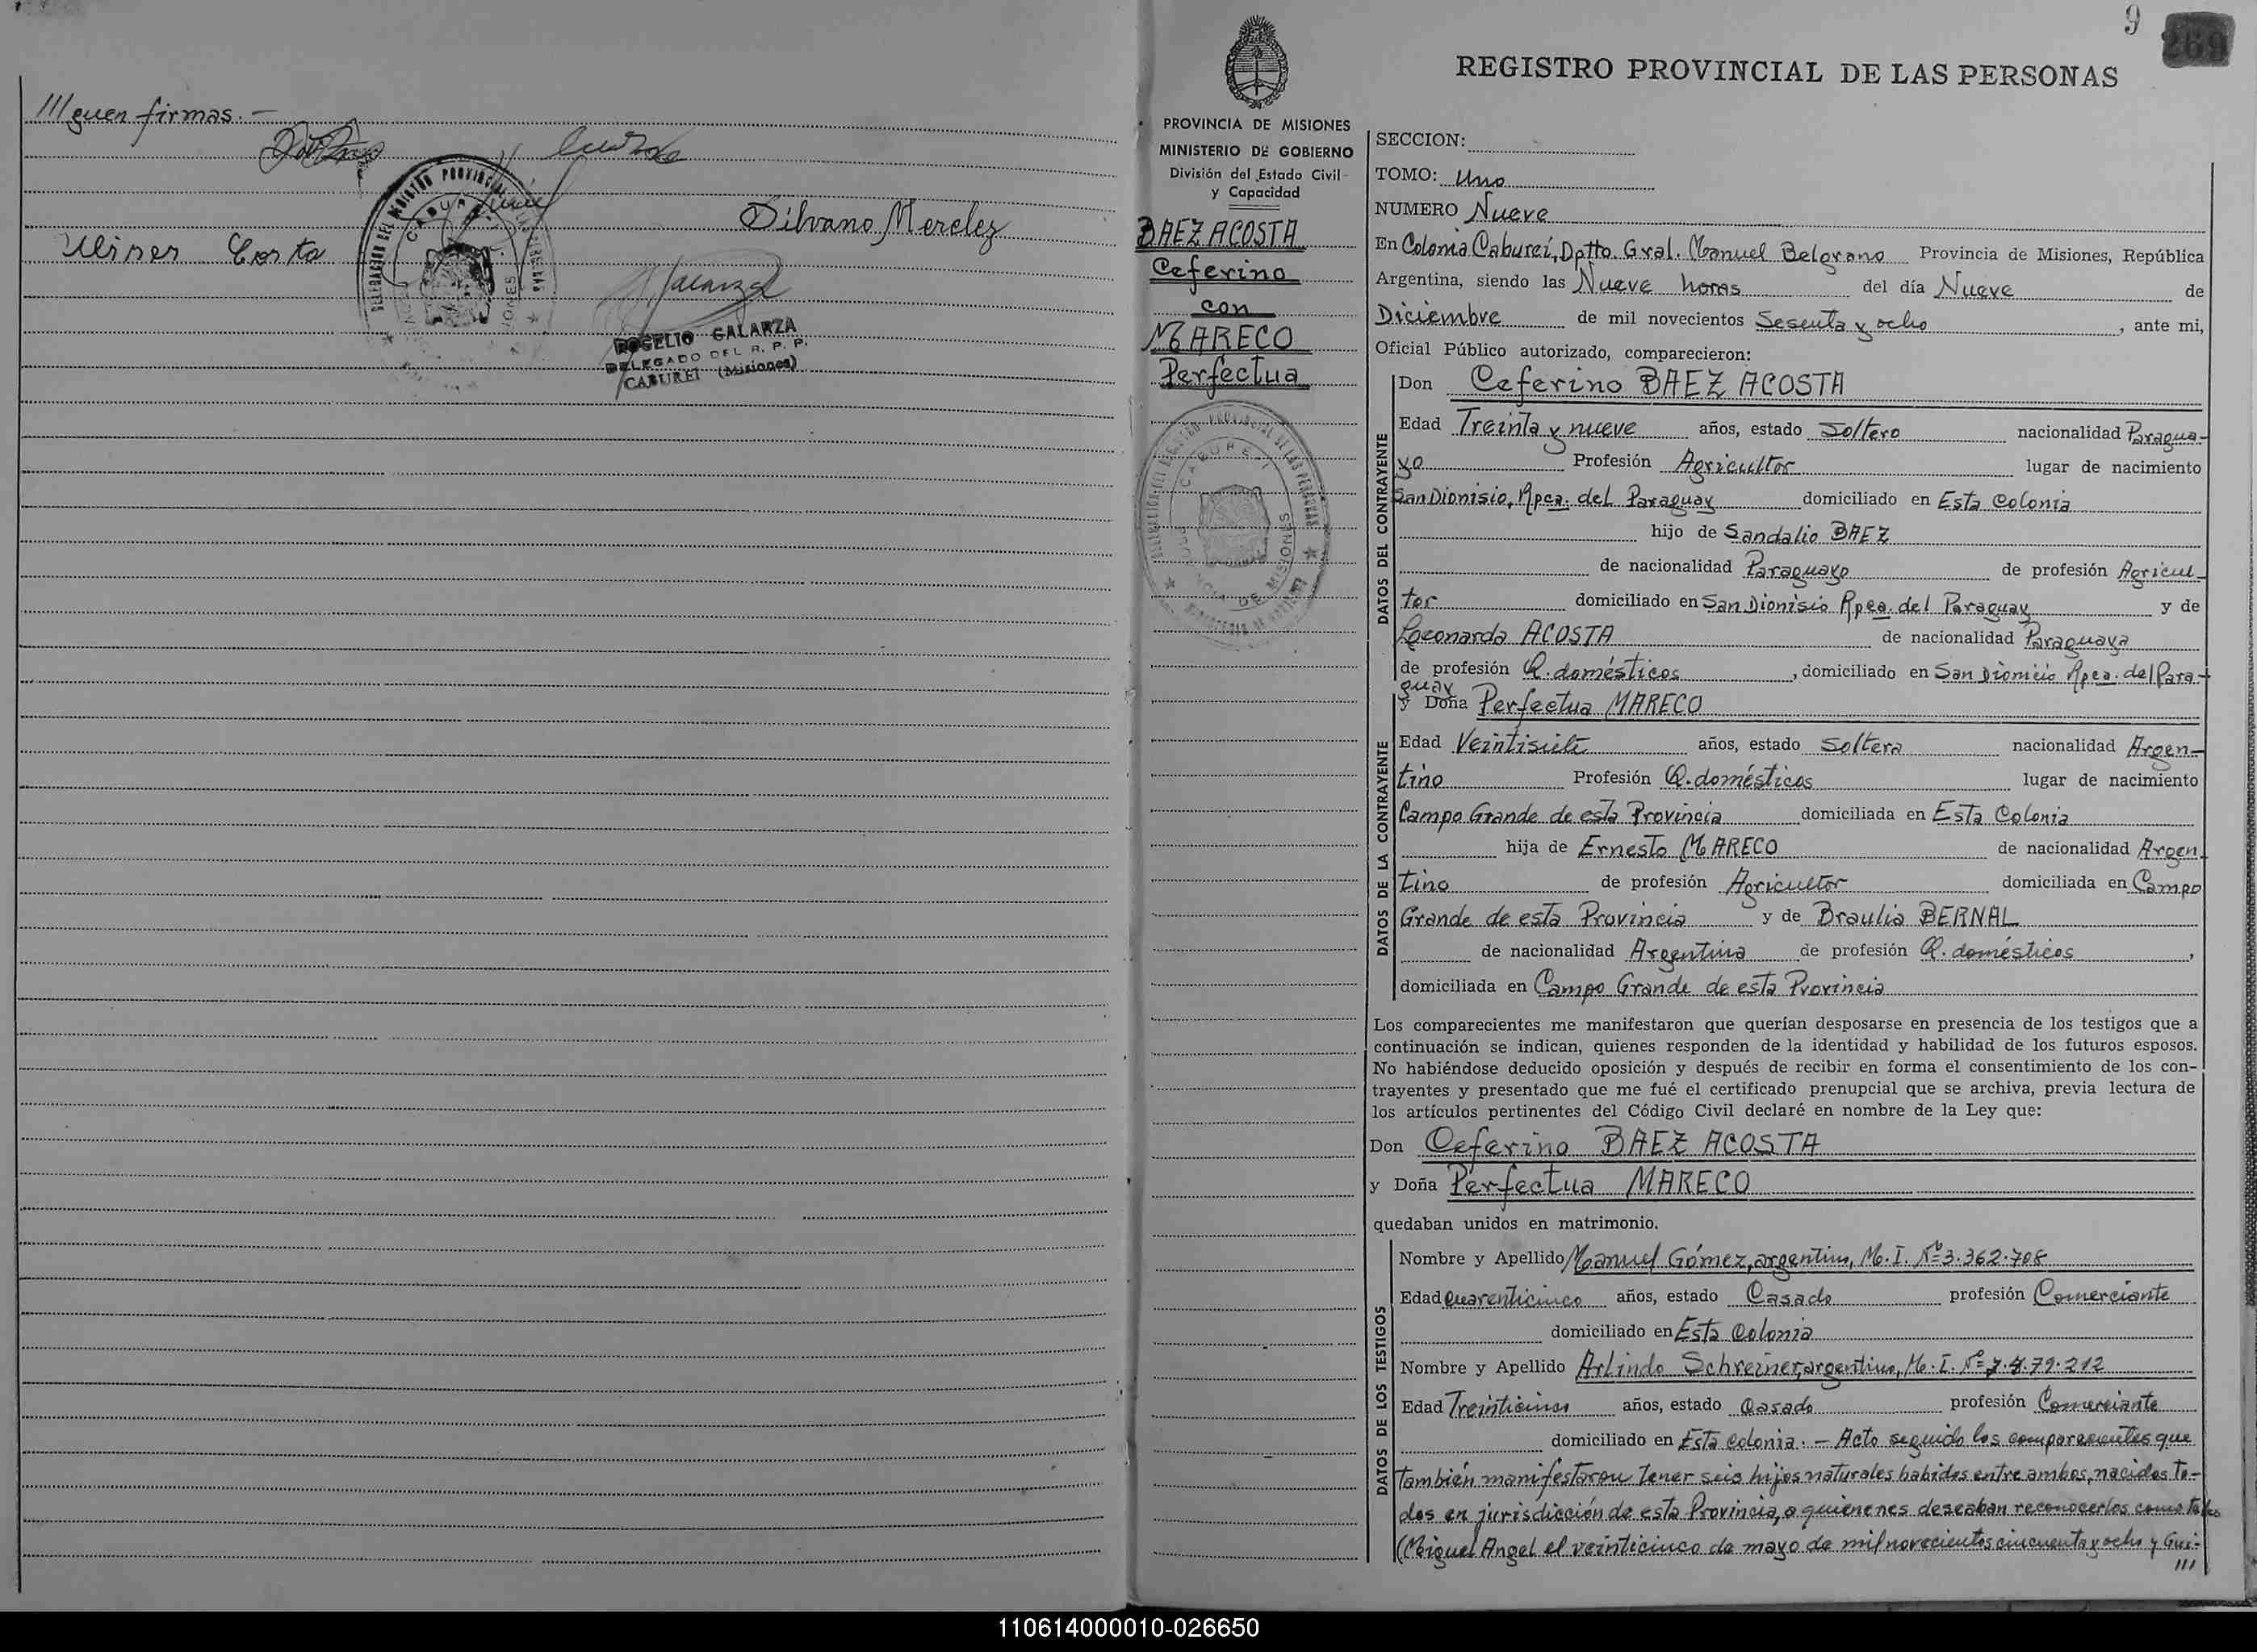 ///guen firmas.-
Silvano Merelez
Ulises
ROGELIO GALARZA
DELEGADO DEL R. P. P.
CABUREI (Misiones)
9
269
REGISTRO PROVINCIAL DE LAS PERSONAS
PROVINCIA DE MISIONES
MINISTERIO DE GOBIERNO
División del Estado Civil
y Capacidad
BAEZ ACOSTA
Ceferino
con
MARECO
Perfectua
SECCION:
TOMO: Uno
NUMERO Nueve
En Colonia Cabureí, Dptto. Gral. Manuel Belgrano Provincia de Misiones, República
Argentina, siendo las Nueve horas del día Nueve de
Diciembre de mil novecientos Sesenta y ocho, ante mi,
Oficial Público autorizado, comparecieron:
DATOS DEL CONTRAYENTE
Don Ceferino BAEZ ACOSTA
Edad Treinta y nueve años, estado Soltero nacionalidad Paragua-
yo Profesión Agricultor lugar de nacimiento
San Dionisio, Rpca. del Paraguay domiciliado en Esta Colonia
hijo de Sandalio BAEZ
de nacionalidad Paraguayo de profesión Agricul-
tor domiciliado en San Dionisio Rpca. del Paraguay y de
Leonarda ACOSTA de nacionalidad Paraguaya
de profesión Q. domésticos, domiciliado en San Dionicio Rpca. del Para-
guay
DATOS DE LA CONTRAYENTE
y Doña Perfectua MARECO
Edad Veintisiete años, estado Soltera nacionalidad Argen-
tino Profesión Q. domésticos lugar de nacimiento
Campo Grande de esta Provincia domiciliada en Esta Colonia
hija de Ernesto MARECO de nacionalidad Argen-
tino de profesión Agricultor domiciliada en Campo
Grande de esta Provincia y de Braulia BERNAL
de nacionalidad Argentina de profesión Q. domésticos,
domiciliada en Campo Grande de esta Provincia
Los comparecientes me manifestaron que querían desposarse en presencia de los testigos que a
continuación se indican, quienes responden de la identidad y habilidad de los futuros esposos.
No habiéndose deducido oposición y después de recibir en forma el consentimiento de los con-
trayentes y presentado que me fué el certificado prenupcial que se archiva, previa lectura de
los artículos pertinentes del Código Civil declaré en nombre de la Ley que:
Don Ceferino BAEZ ACOSTA
y Doña Perfectua MARECO
quedaban unidos en matrimonio.
DATOS DE LOS TESTIGOS
Nombre y Apellido Manuel Gómez, argentino, M. I. Nº 3.362.708
Edad Cuarenticinco años, estado Casado profesión Comerciante
domiciliado en Esta Colonia
Nombre y Apellido Arlindo Schreiner, argentino, M. I. Nº
Edad Treinticinco años, estado Casado profesión Comerciante
domiciliado en Esta colonia.- Acto seguido los comparecientes que
también manifestaron tener seis hijos naturales habidos entre ambos, nacidos to-
dos en jurisdicción de esta Provincia, a quienenes deseaban reconocerlos como tales
(Miguel Angel el veinticinco de mayo de mil novecientos cincuenta y ocho y Gui-
///
110614000010-026650